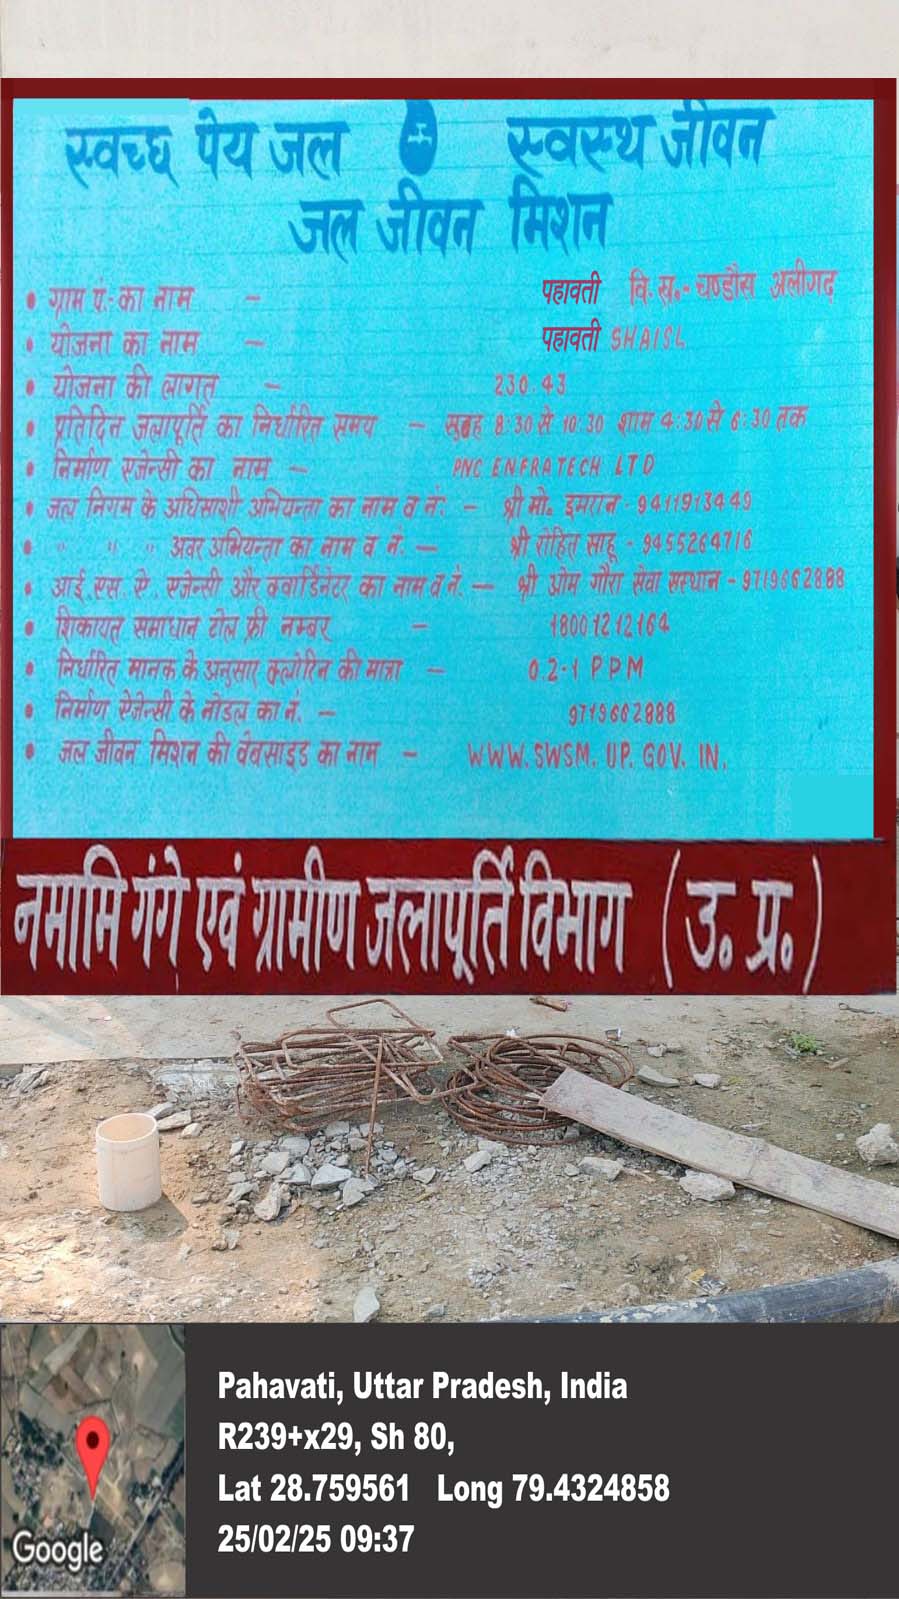 स्वच्छ पेय जल स्वस्थ जीवन
जल जीवन मिशन
• ग्राम पं.-का नाम - पहावती वि.ख.-चण्डौस अलीगढ़
• योजना का नाम - पहावती SHAISL
• योजना की लागत - 230.43
• प्रतिदिन जलापूर्ति का निर्धारित समय - सुबह 8:30 से 10:30 शाम 4:30 से 6:30 तक
• निर्माण एजेन्सी का नाम - PNC ENFRATECH LTD
• जल निगम के अधिसाशी अभियन्ता का नाम व नं: - श्री मो. इमरान - 9411913449
• " " " अवर अभियन्ता का नाम व नं: - श्री रोहित साहू - 9455264716
• आई.एस.ऐ. एजेन्सी और क्वार्डिनेटर का नाम व नं. - श्री ओम गौरा सेवा सस्थान - 9719662888
• शिकायत समाधान टोल फ्री नम्बर - 18001212164
• निर्धारित मानक के अनुसार क्लोरिन की मात्रा - 0.2-1 PPM
• निर्माण ऐजेन्सी के नोडल का नं. - 9719662888
• जल जीवन मिशन की वेबसाइड का नाम - WWW.SWSM.UP.GOV.IN.
नमामि गंगे एवं ग्रामीण जलापूर्ति विभाग (उ. प्र.)
Pahavati, Uttar Pradesh, India
R239+x29, Sh 80,
Lat 28.759561 Long 79.4324858
25/02/25 09:37
Google